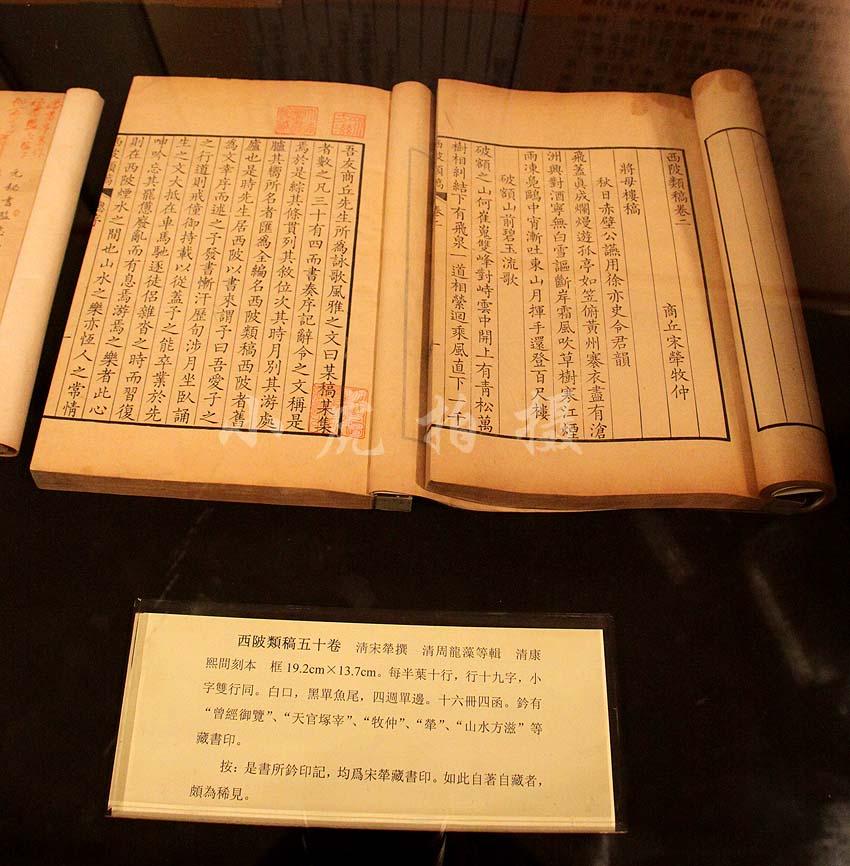 西陂類稿卷二
商丘宋犖牧仲
將母樓稿
秋日赤壁公讌用徐亦史令君韻
飛蓋真成爛熳遊孤亭如笠俯黃州寨衣盡有滄
洲興對酒寧無白雪謳斷岸霜風吹草樹寒江煙
雨凍鳧鷗中宵漸吐東山月揮手還登百尺樓
破額山前碧玉流歌
破額之山何崔嵬雙峰對峙雲中開上有青松萬
樹相糾結下有飛泉一道相縈迴乘風直下一千
西陂類稿 卷二
吾友商丘先生所為詠歌風雅之文曰某稿某集
者數之凡三十有四而書奏序記辭令之文稱是
焉於是綜其條貫列其敘位次其時月別其游處
臚其嚮所名者匯為全編名西陂類稿西陂者舊
廬也是時先生居西陂以書來謂予曰吾愛子之
為文幸序而述之予發書慚汗歷旬涉月坐臥誦
之行道則戒僮御持載以從蓋予之能卒業於先
生之文大抵在車馬馳逐徒侶雜沓之時而習復
呻吟忘其罷憊廢亂而有息焉游焉之樂者此心
則在西陂煙水之間也山水之樂亦恆人之常情
西陂類稿
元秘書監
小虎拍攝
西陂類稿五十卷 清宋犖撰 清周龍藻等輯 清康
熙間刻本 框19.2cm×13.7cm。每半葉十行，行十九字，小
字雙行同。白口，黑單魚尾，四週單邊。十六冊四函。鈐有
“曾經御覽”、“天官塚宰”、“牧仲”、“犖”、“山水方滋”等
藏書印。
按：是書所鈐印記，均爲宋犖藏書印。如此自著自藏者，
頗為稀見。